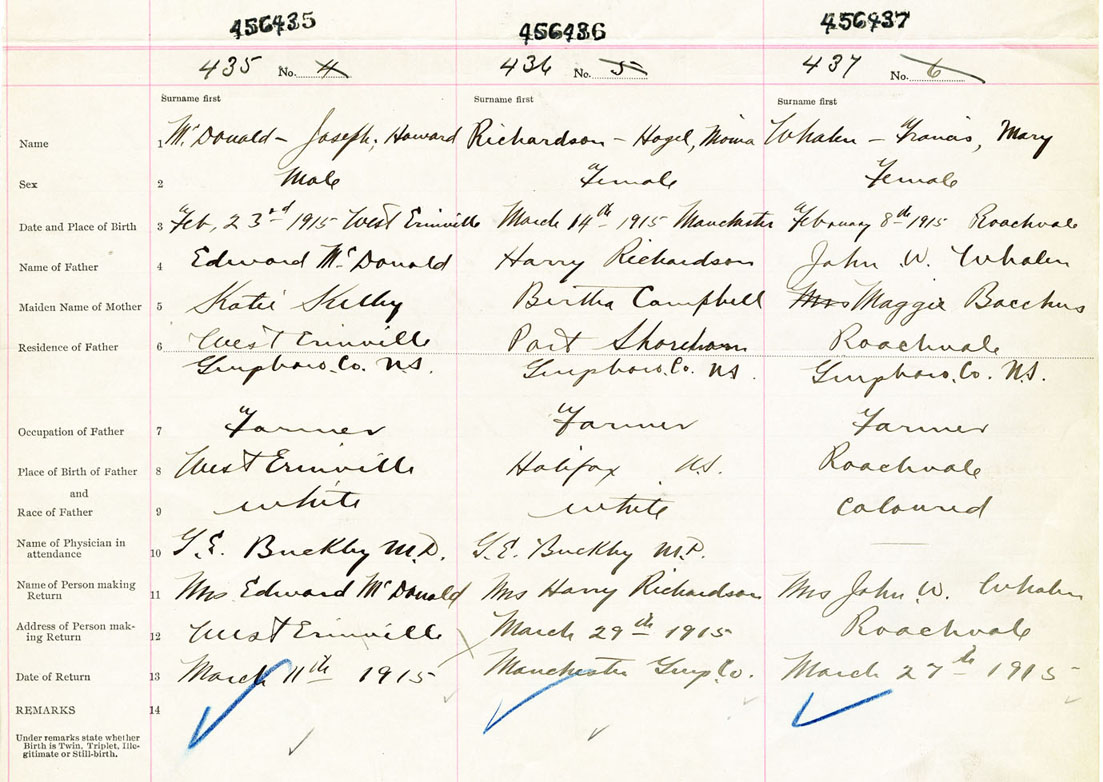 456435 456436 456437
435 No. 4 436 No. 5 437 No. 6
Surname first Surname first Surname first
Name 1 McDonald - Joseph, Howard Richardson - Hazel, Whalen - Francis, Mary
Sex 2 Male Female Female
Date and Place of Birth 3 Feb, 23rd 1915 West Erinville March 14th 1915 Manchester February 8th 1915 Roachvale
Name of Father 4 Edward McDonald Harry Richardson John W. Whalen
Maiden Name of Mother 5 Katie Bertha Campbell Mrs Maggie Bacchus
Residence of Father 6 West Erinville Port Shoreham Roachvale
Guysboro. Co. N.S. Guysboro. Co. N.S. Guysboro. Co. N.S.
Occupation of Father 7 Farmer Farmer Farmer
Place of Birth of Father 8 West Erinville Halifax N.S. Roachvale
and
Race of Father 9 white white coloured
Name of Physician in
attendance 10 G.E. Buckley M.D. G.E. Buckley M.D.
Name of Person making
Return 11 Mrs Edward McDonald Mrs Harry Richardson Mrs John W. Whalen
Address of Person mak-
ing Return 12 West Erinville March 29th 1915 Roachvale
Date of Return 13 March 11th 1915 Manchester Guys Co. March 27th 1915
REMARKS 14
Under remarks state whether
Birth is Twin, Triplet, Ille-
gitimate or Still-birth.